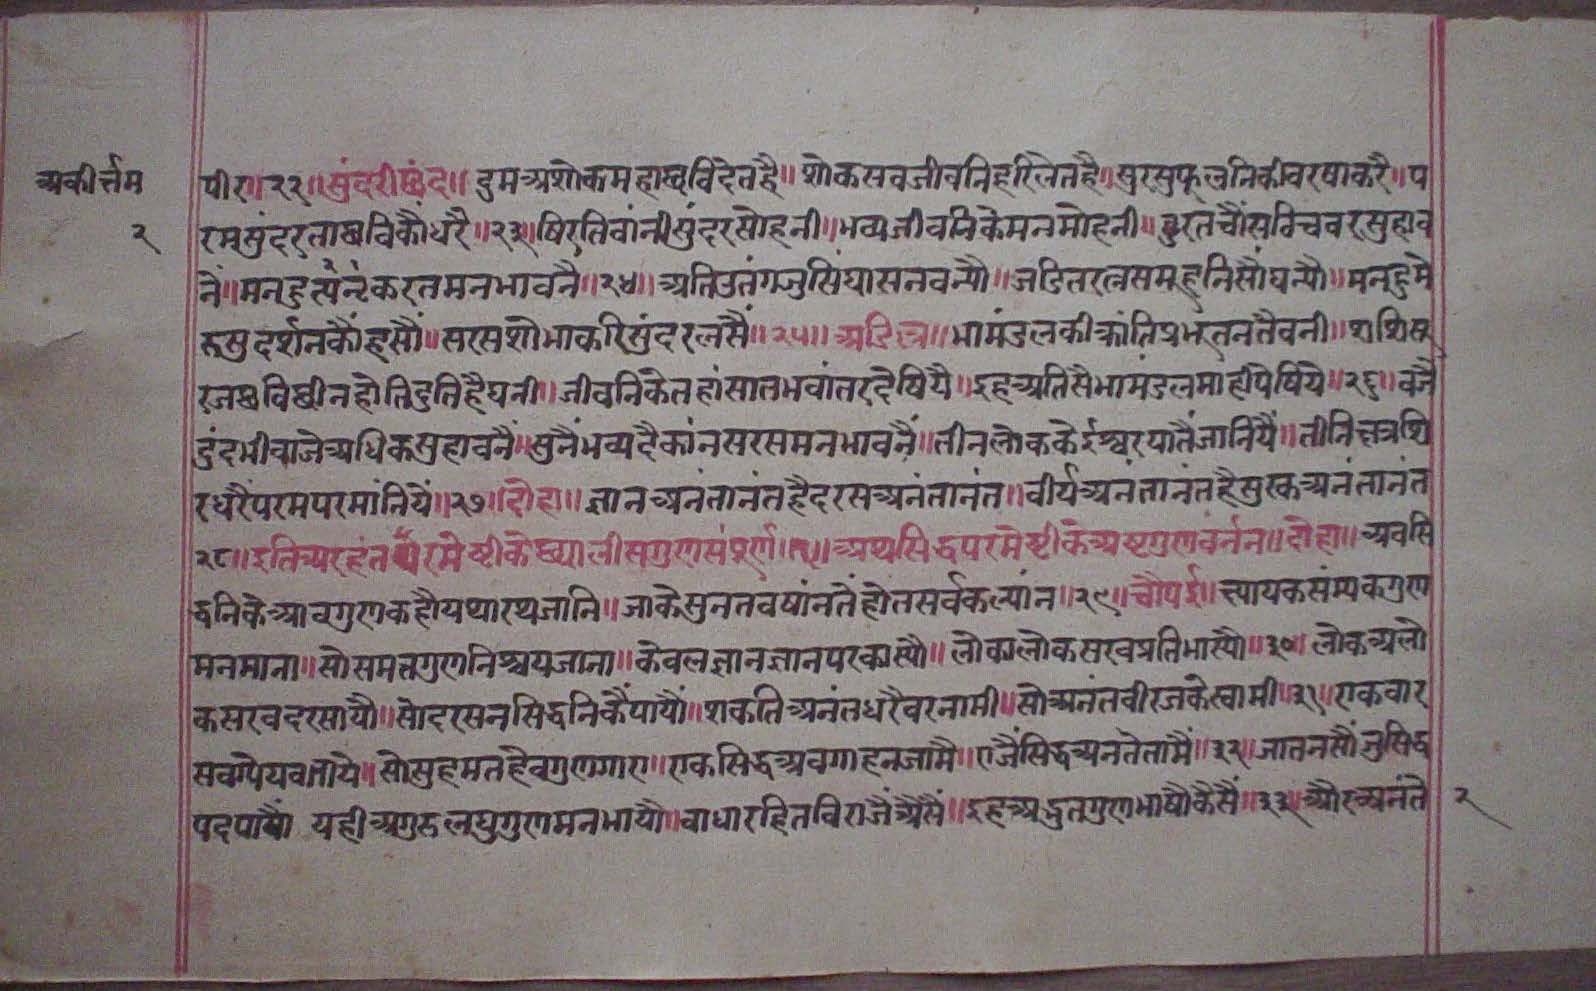 अकीर्त्तम
२
पीरा॥२२॥सुंदरीछंद॥ द्रुमअशोकमहाछविदेतहै॥ शोकसवजीवनिहरिलेतहै॥सुरसुफूलनिकीवरषाकरै॥प
रमसुंदरताछविकौंधरै॥२३॥षिरतिवांनीसुंदरसोहनी॥भव्यजीवनिकेमनमोहनी॥ढुरतचौंसठिचवरसुहाव
नें॥मनहुनृत्यंकरतमनभावनै॥२४॥ अतिउतंगजुसिंघासनवन्यौ॥ जडितरत्नसमूहनिसौंघन्यौ॥मनहुमे
रुसुदर्शनकौंहसौं॥सरसशोभाकरिसुंदरलसैं॥२५॥ अडिल्ल॥ भामंडलकीक्रांतिप्रभुतनतैवनी॥ शशिसू
रजछविछीनहोतिदुतिहैघनी॥ जीवनिकेतहांसातभवांतरदेषियै॥ इहअतिसैभामंडलमाहीपेषिये॥२६॥ वजै
दुंदभीवाजेअधिकसुहावनैं॥सुनैंभव्यदैकांनसरसमनभावनैं॥तीनलोककेईश्वरयातैंजानियैं॥तीनिछत्रशि
रधरैंपरमपरमांनियें॥२७॥दोहा॥ ज्ञानअनंतानंतहैदरसअनंतानंत॥ वीर्यअनंतानंतहैसुरकअनंतानंत
२८॥इतिअरहंतपरमेष्टीकेछ्यालीसगुणसंपूर्ण॥१॥अथसिद्धपरमेष्टीकेअष्टगुणवर्नन॥दोहा॥ अवसि
द्धनिकेआठगुणकहौयथारथजानि॥ जाकेसुनतवषांनतेंहोतसर्वकल्यांन॥२९॥चौपई॥ क्ष्यायकसंम्यकगुण
मनमाना॥सोसमत्तगुणनिश्चयजाना॥केवलज्ञानज्ञानपरकास्यौ॥ लोकालोकसरवप्रतिभास्यौ॥३०॥ लोकअलो
कसरवदरसायौ॥सोदरसनसिद्धनिकैंपायौं॥शकतिअनंतधरैवरनामी॥सोअनंतवीरजकेस्वामी॥३१॥एकवार
सवज्ञेयवतायै॥ सोसुहमतहैवगुणगाए॥एकसिद्धअवगाहनजामै॥राजैंसिद्धअनतेतामैं॥३२॥ जातनसौंजुसिद्ध
पदपायौं यहीअगुरुलघुगुणमनभायौ॥वाधारहितविराजैंअैसैं॥इहअद्भुतगुणभाषौकैसैं॥३३॥औरअनंते
२